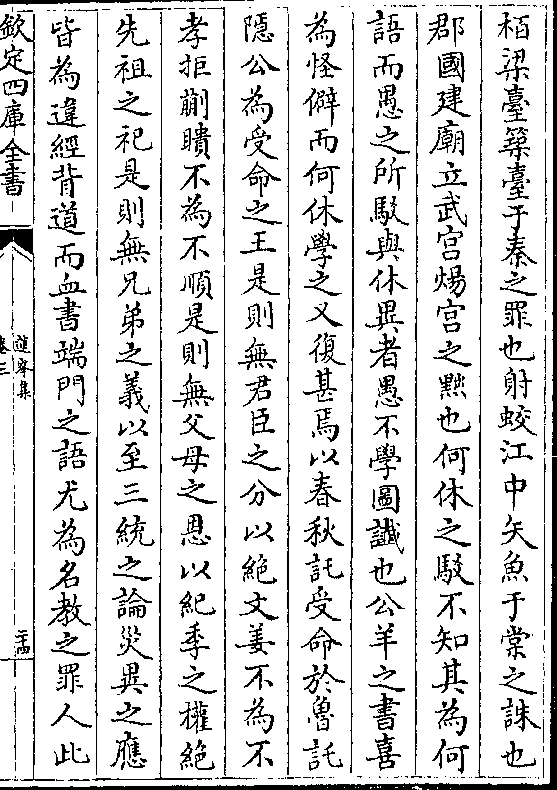 栢梁臺築臺于秦之罪也射蛟江中矢魚于棠之誅也
郡國建廟立武宫煬宫之黜也何休之駁不知其為何
語而愚之所駁與休異者愚不學圖讖也公羊之書喜
為怪僻而何休學之又復甚焉以春秋託受命於魯託
隱公為受命之王是則無君臣之分以絶文姜不為不
孝拒蒯聵不為不順是則無父母之恩以紀季之權絶
先祖之祀是則無兄弟之義以至三統之論災異之應
皆為違經背道而血書端門之語尤為名教之罪人此
欽定四庫全書
卷三
二十四